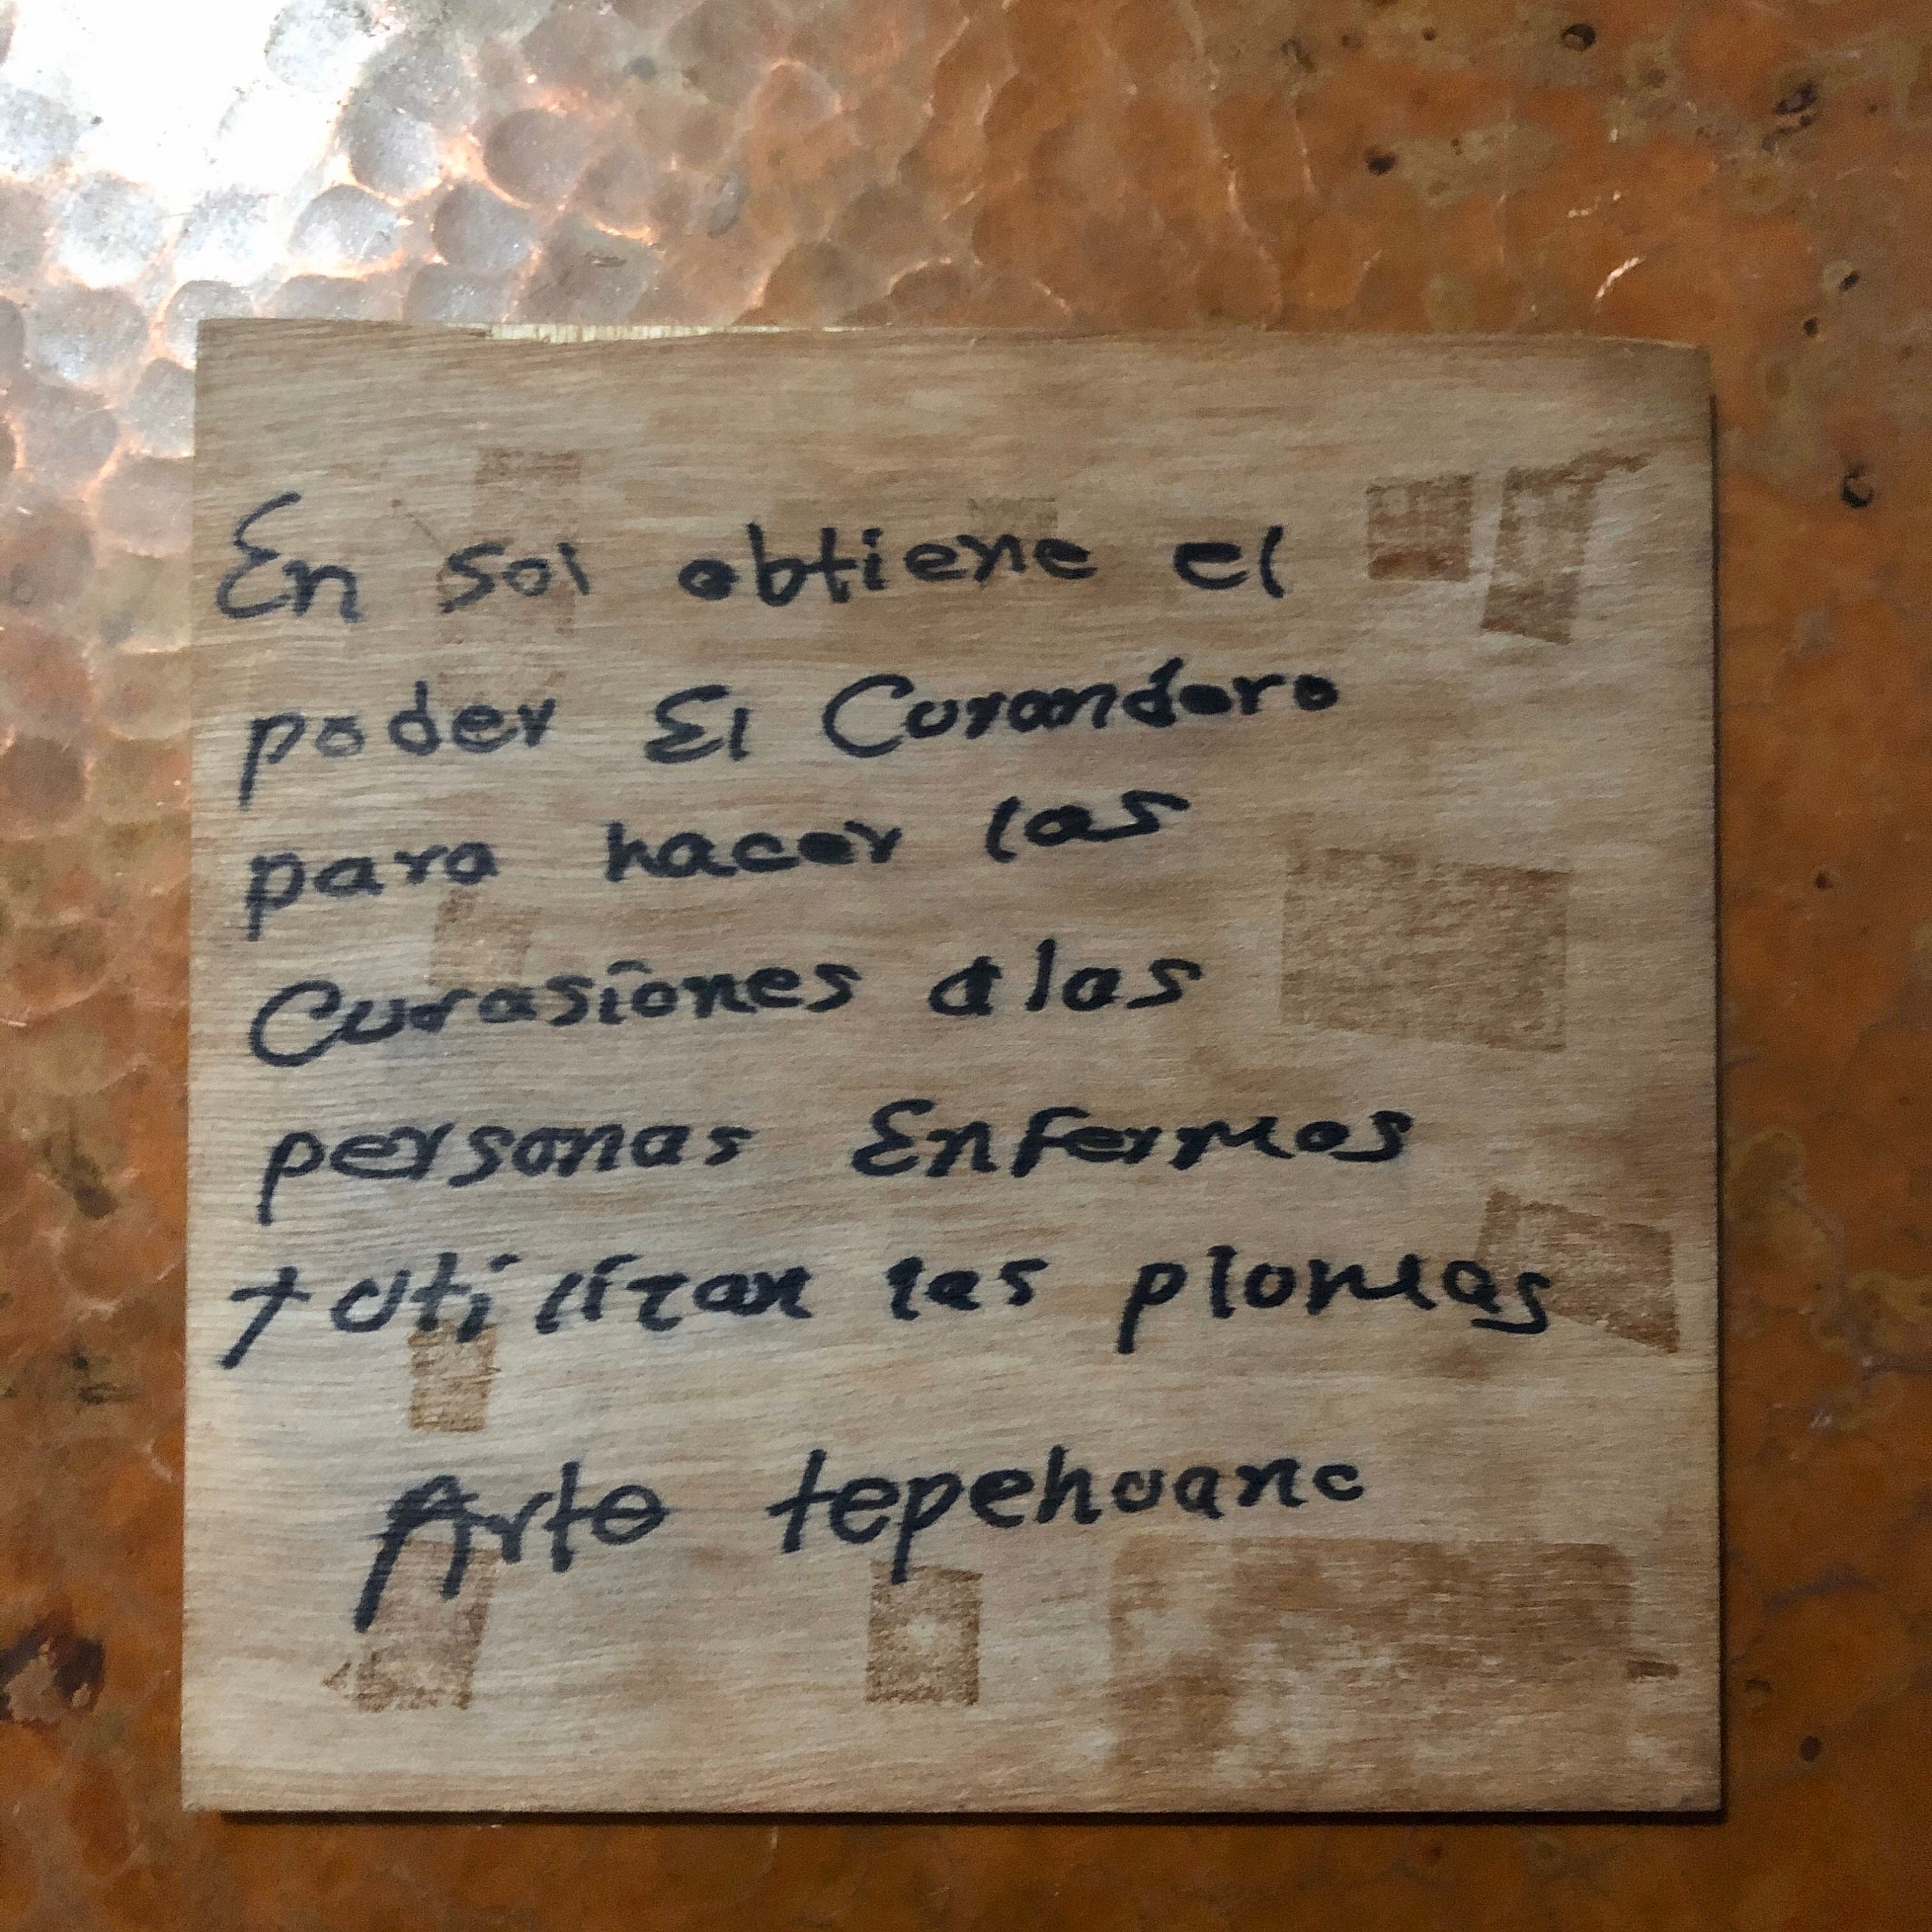 En sol obtiene el
poder El Curandero
para hacer las
Curasiones a las
personas Enfermos
y utilizan las plantas
Arte tepehuano